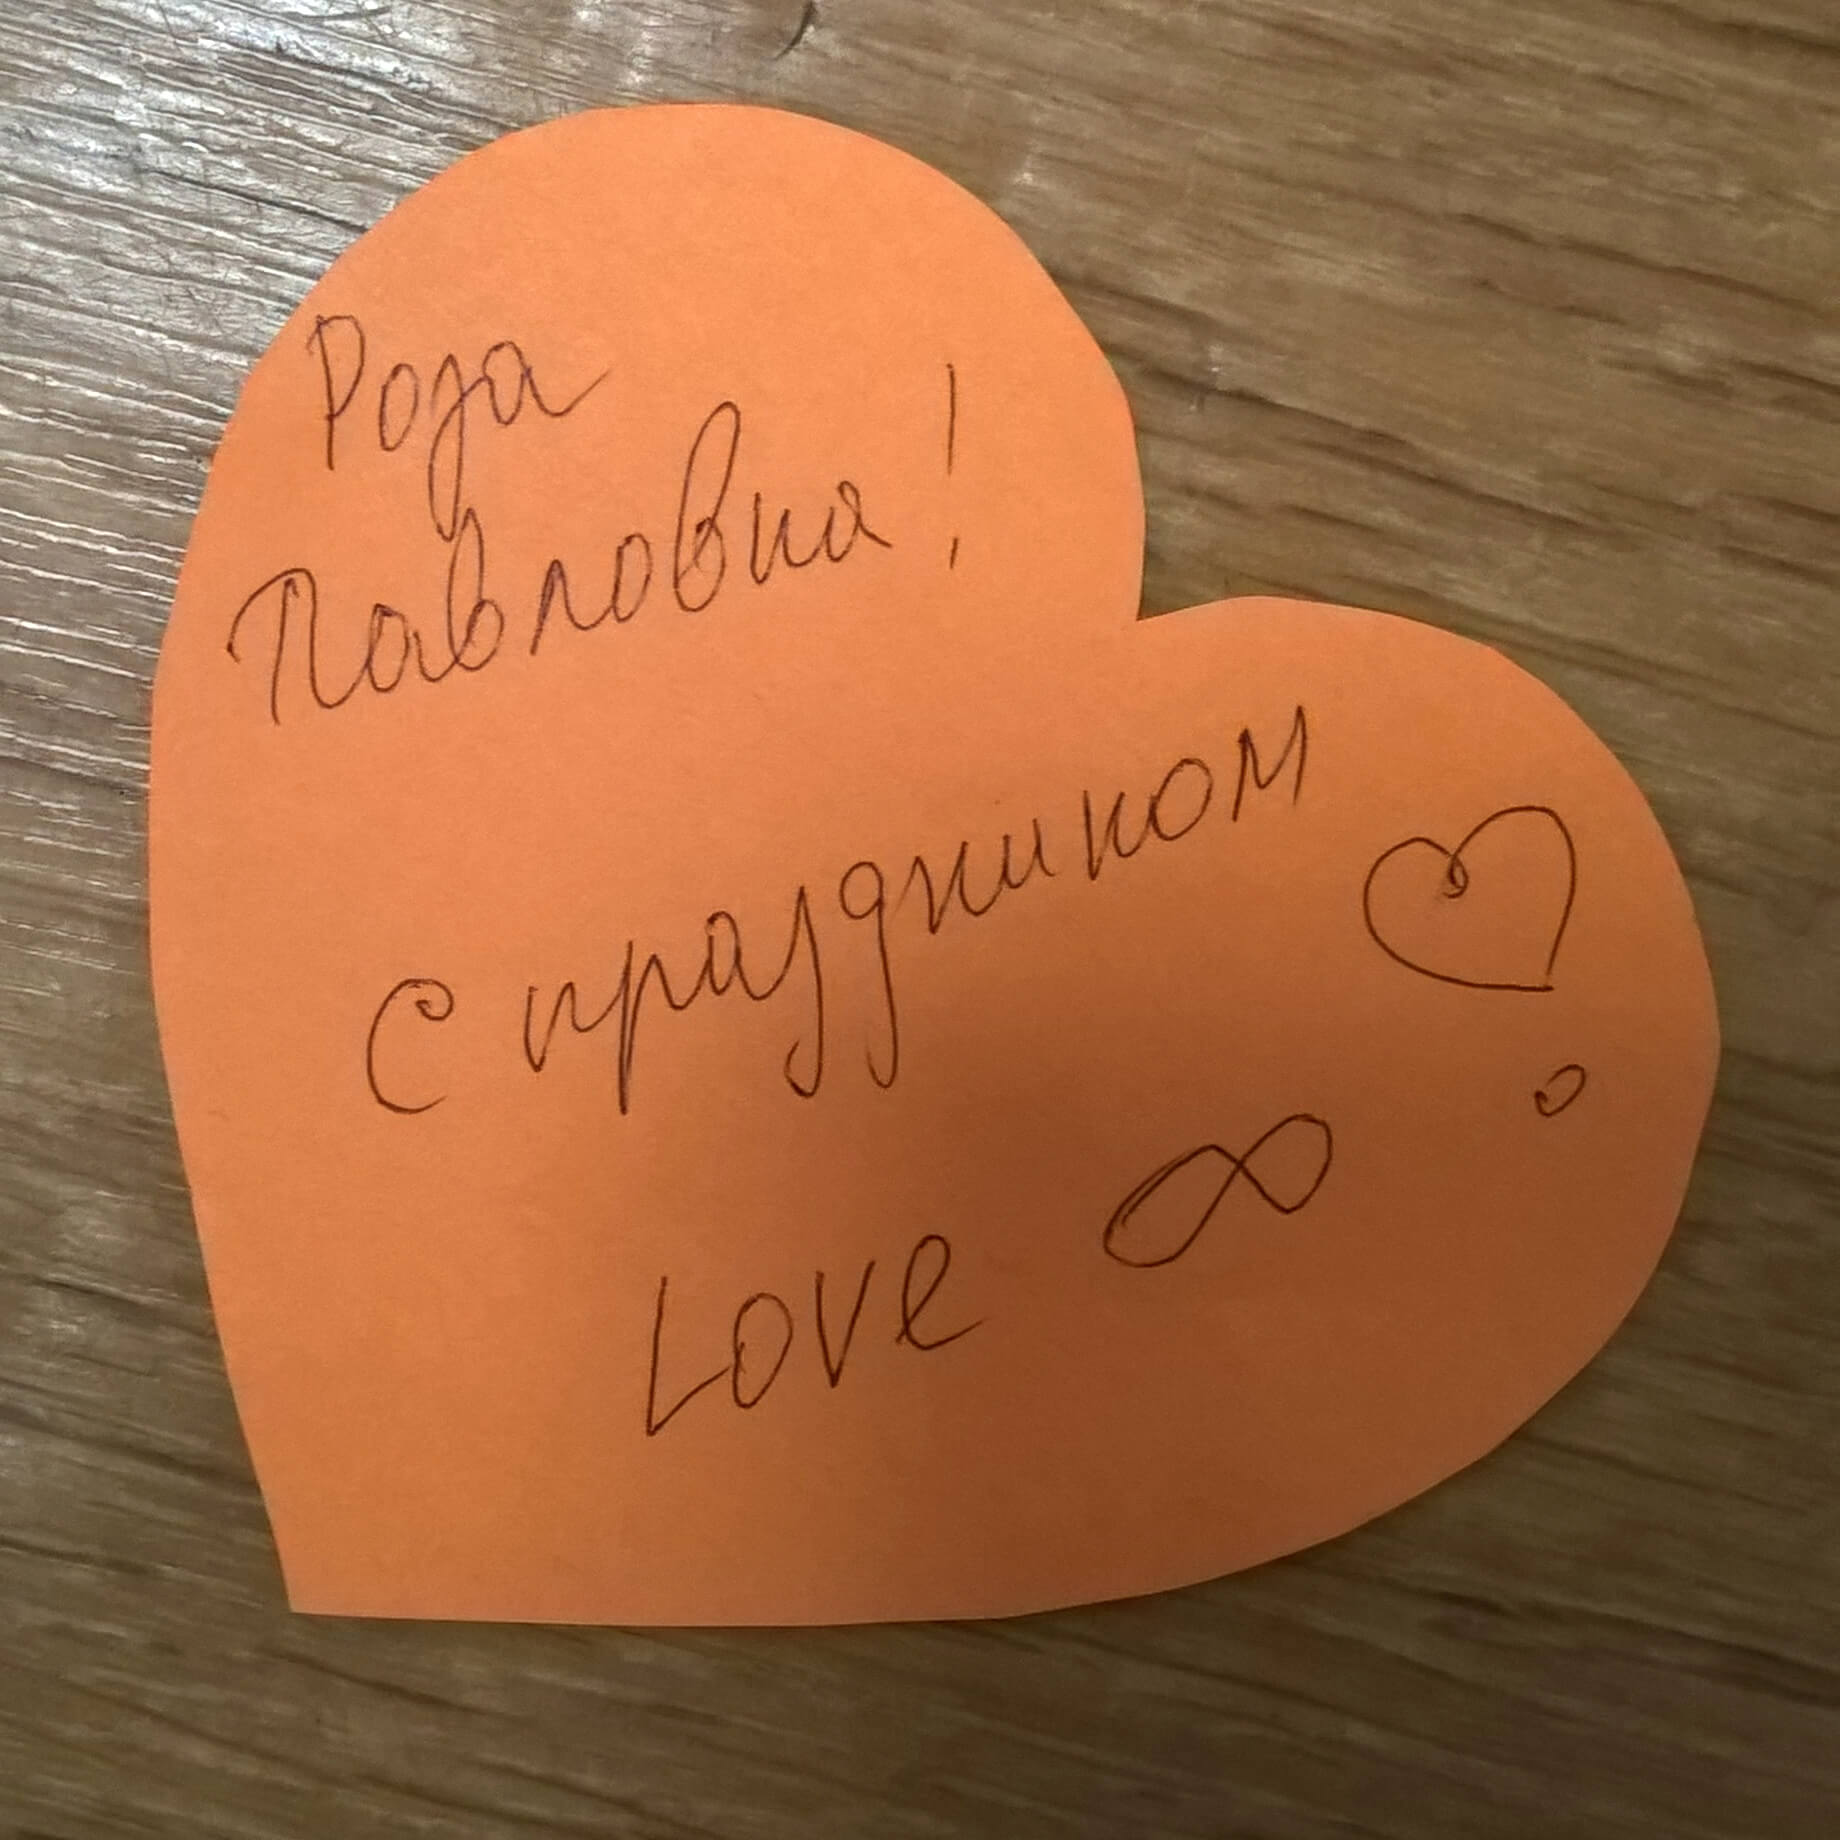 Роза
Павловна!
С праздником
Love ∞